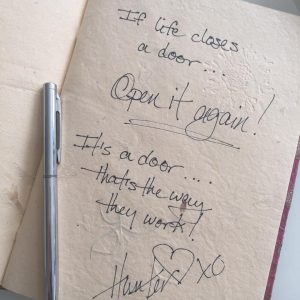 If life closes
a door...
Open it again!
It's a door....
that's the way
they work!
XO